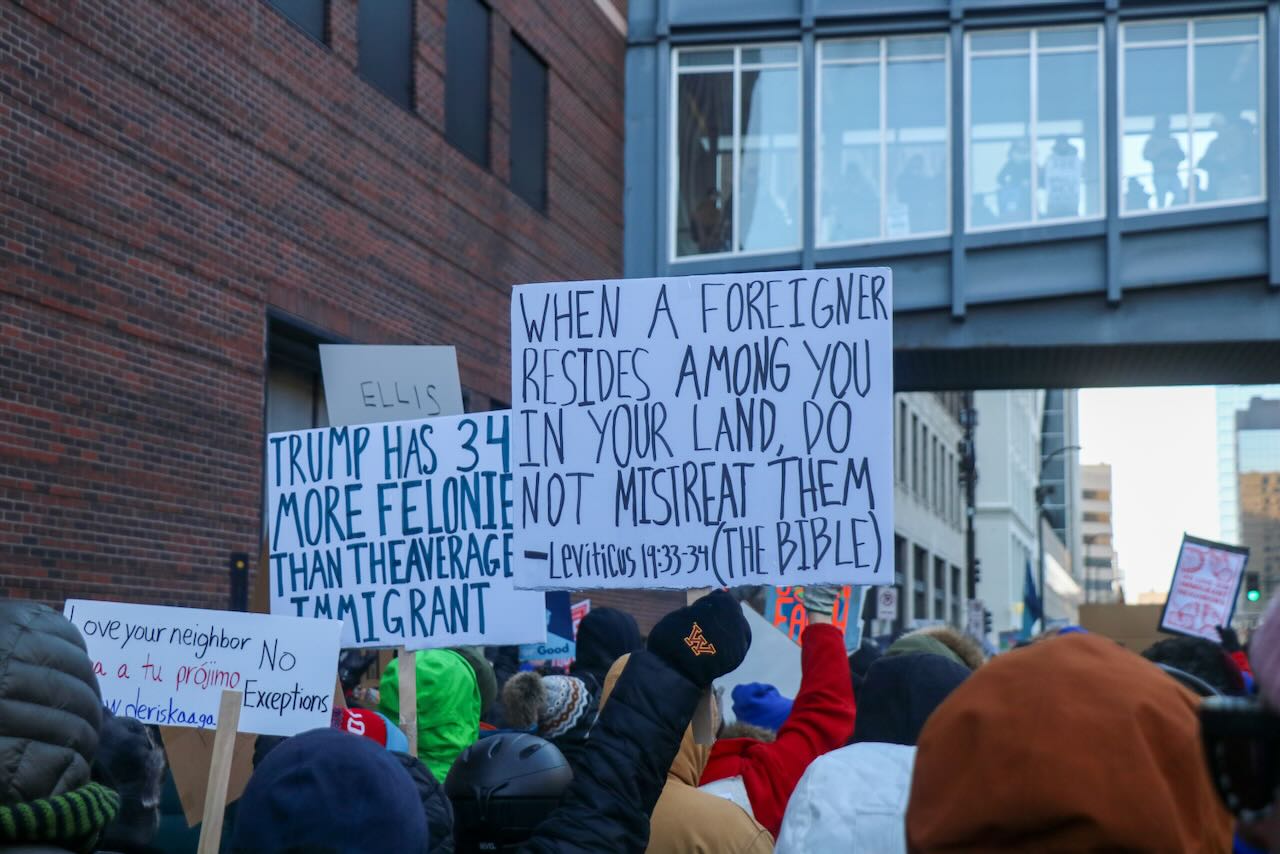 ELLIS
TRUMP HAS 34
MORE FELONIE
THAN THE AVERAGE
IMMIGRANT
WHEN A FOREIGNER
RESIDES AMONG YOU
IN YOUR LAND, DO
NOT MISTREAT THEM
-LEVITICUS 19:33-34 (THE BIBLE)
Love your neighbor No
a a tu prójimo
Exceptions
Good